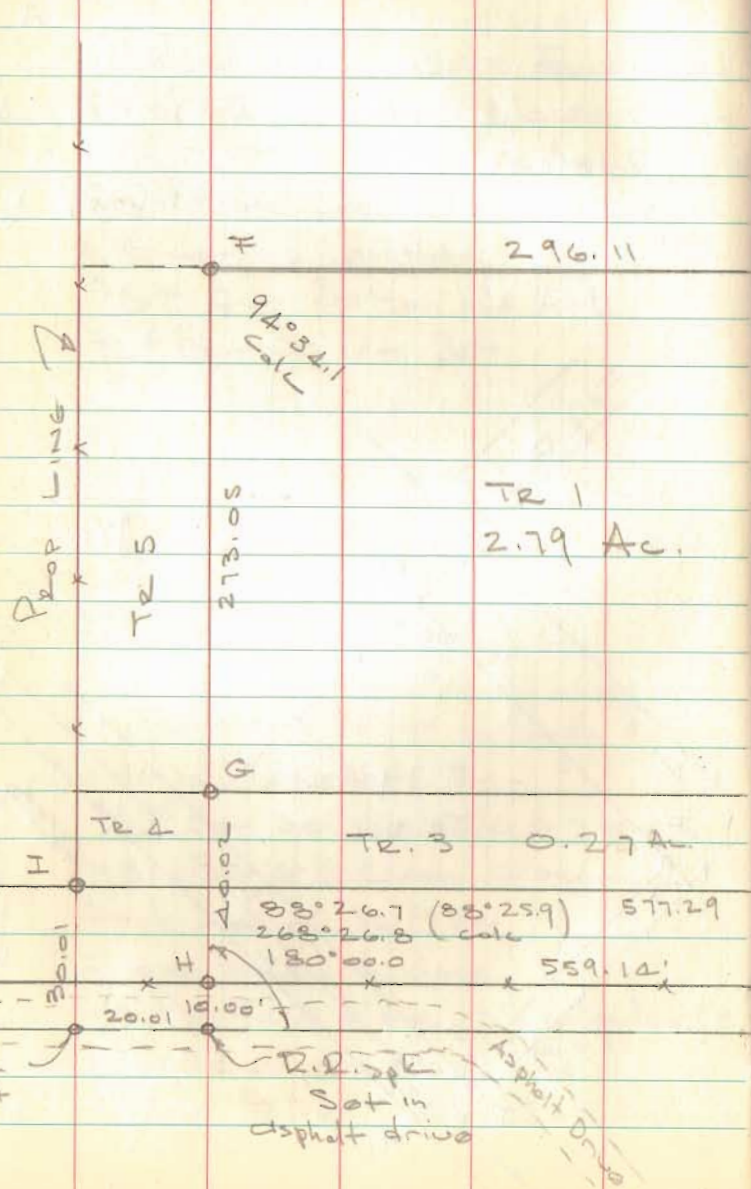 F
296.11
94°34.1
Calc
PROP LINE
TR 5
273.05
TR 1
2.79 Ac.
G
TR 4
40.02
TR. 3 0.27 Ac.
I
88°26.7 (88°25.9) 577.29
268°26.8 calc
180°00.0
H
559.14'
30.01
20.01 10.00'
R.R. Spk
Set in
asphalt drive
Asphalt Drive